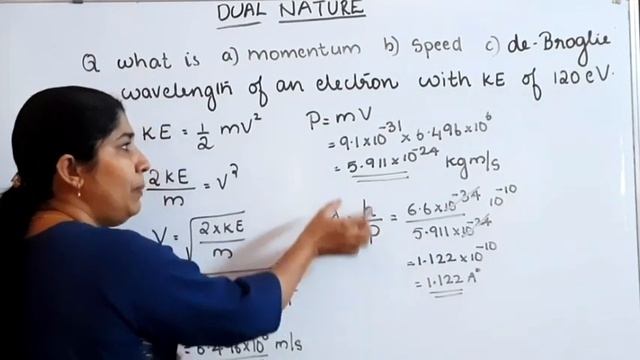 DUAL NATURE
Q what is a) momentum b) speed c) de-Broglie
wavelength of an electron with KE of 120 eV.
KE = 1/2 mV²
2KE/m = V²
V = √(2×KE/m)
m/s
P = mV
= 9.1×10⁻³¹ × 6.496×10⁶
= 5.911×10⁻²⁴ kgm/s
h/p = 6.6×10⁻³⁴/5.911×10⁻²⁴ 10⁻¹⁰
= 1.122×10⁻¹⁰
= 1.122 A°